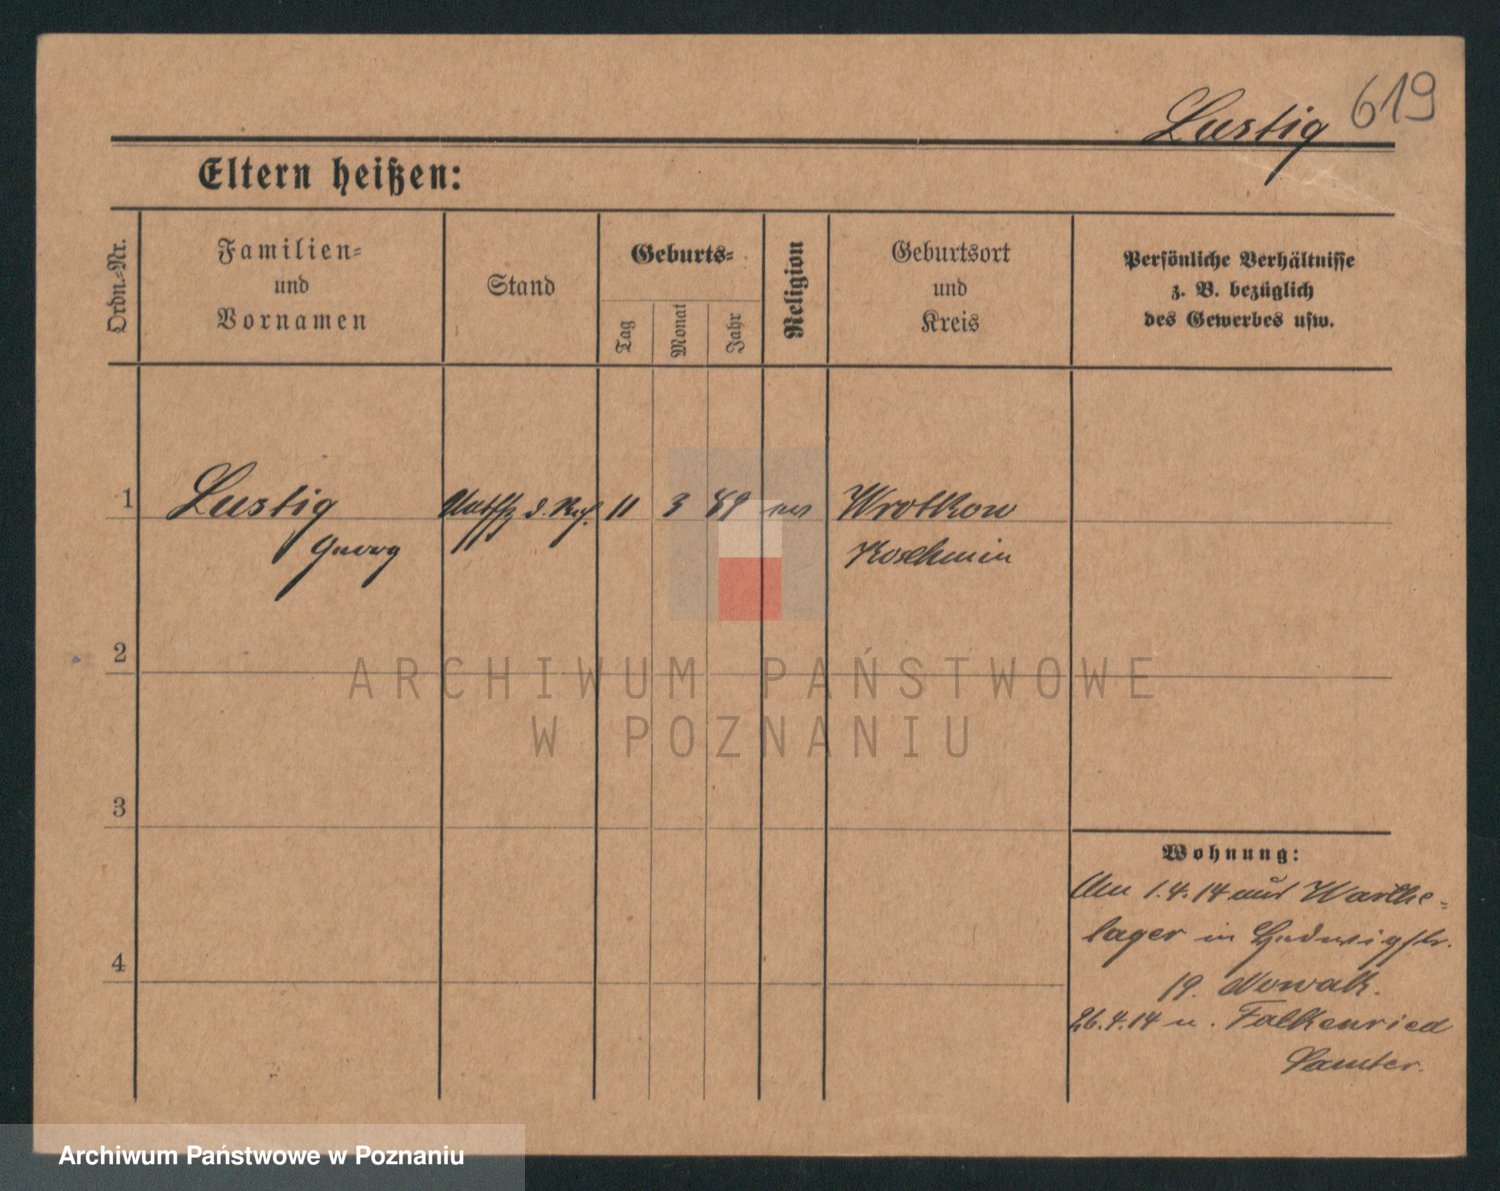 619
Lustig
Eltern heißen:
Ordn.-Nr.
Familien-
und
Vornamen
Stand
Geburts-
Tag
Monat
Jahr
Religion
Geburtsort
und
Kreis
Persönliche Verhältnisse
z. B. bezüglich
des Gewerbes usw.
1 Lustig 11 3 89 Wrotkow
Georg Koschmin
2
ARCHIWUM PAŃSTWOWE
W POZNANIU
3
Wohnung:
Am 1.4.14 aus Warthe-
lager in Hedwigstr.
19. Nowak.
4
26.4.14 n. Falkenried
Samter.
Archiwum Państwowe w Poznaniu